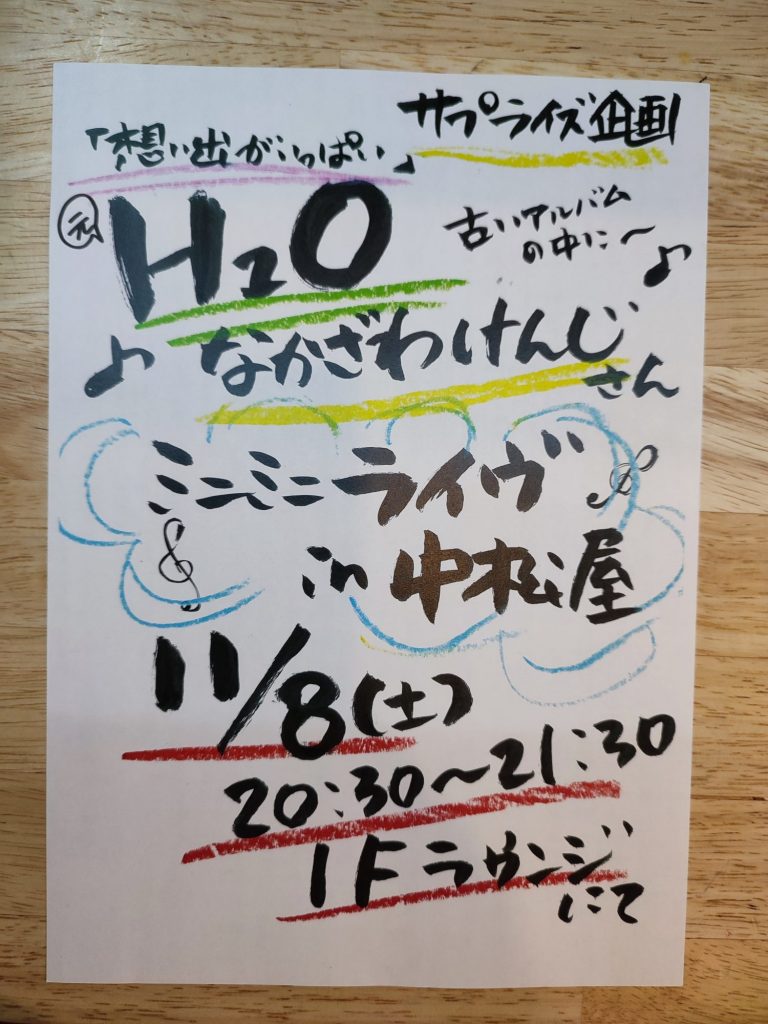 サプライズ企画
「想い出がいっぱい」
元
H2O
古いアルバム
の中に〜♪
♪ なかざわけんじ
さん
ミニミニライヴ
in 中松屋
11/8(土)
20:30〜21:30
1Fラウンジ
にて